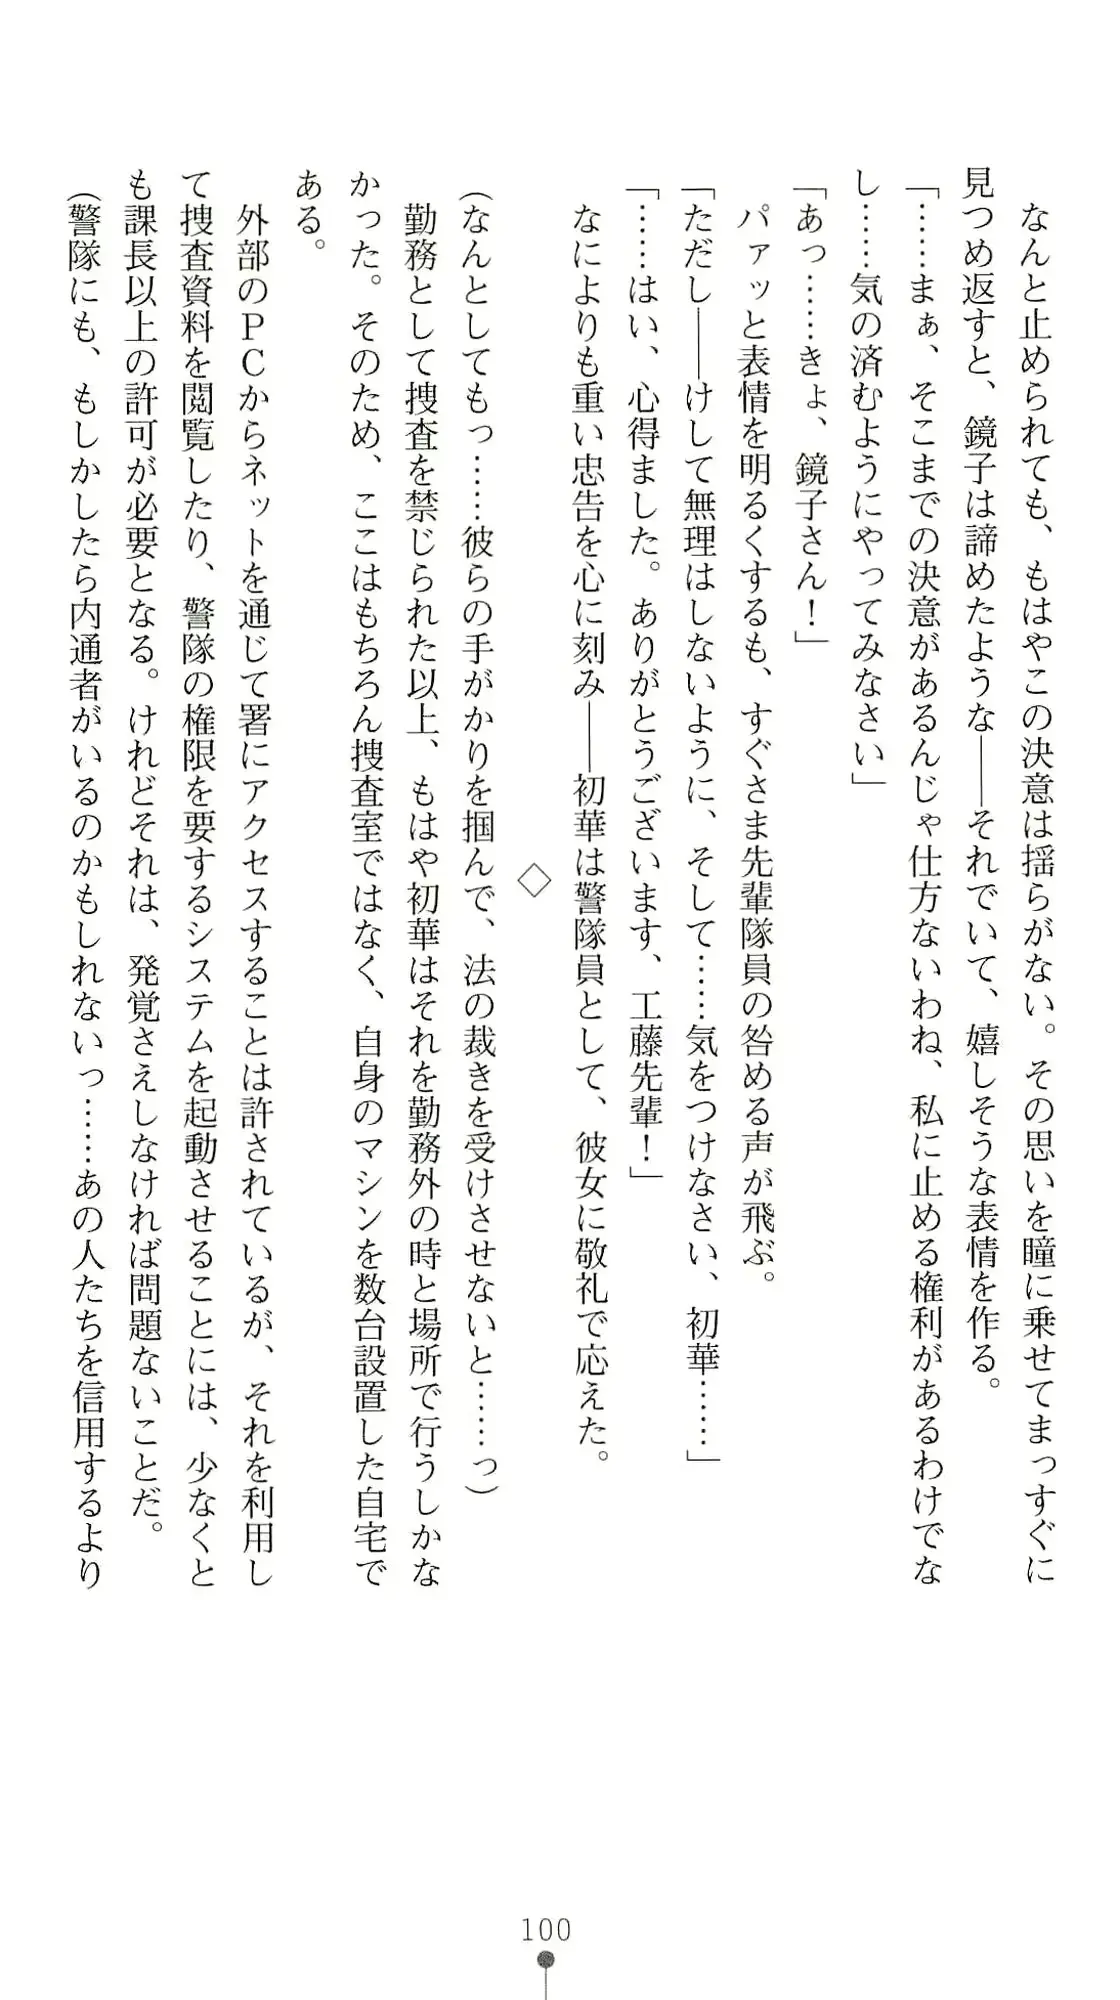 なんと止められても、もはやこの決意は揺らがない。その思いを瞳に乗せてまっすぐに
見つめ返すと、鏡子は諦めたような――それでいて、嬉しそうな表情を作る。
「……まぁ、そこまでの決意があるんじゃ仕方ないわね、私に止める権利があるわけでな
し……気の済むようにやってみなさい」
「あっ……きょ、鏡子さん！」
パァッと表情を明るくするも、すぐさま先輩隊員の咎める声が飛ぶ。
「ただし――けして無理はしないように、そして……気をつけなさい、初華……」
「……はい、心得ました。ありがとうございます、工藤先輩！」
なによりも重い忠告を心に刻み――初華は警隊員として、彼女に敬礼で応えた。
◇
(なんとしてもっ……彼らの手がかりを掴んで、法の裁きを受けさせないと……っ)
勤務として捜査を禁じられた以上、もはや初華はそれを勤務外の時と場所で行うしかな
かった。そのため、ここはもちろん捜査室ではなく、自身のマシンを数台設置した自宅で
ある。
外部のＰＣからネットを通じて署にアクセスすることは許されているが、それを利用し
て捜査資料を閲覧したり、警隊の権限を要するシステムを起動させることには、少なくと
も課長以上の許可が必要となる。けれどそれは、発覚さえしなければ問題ないことだ。
(警隊にも、もしかしたら内通者がいるのかもしれないっ……あの人たちを信用するより
100